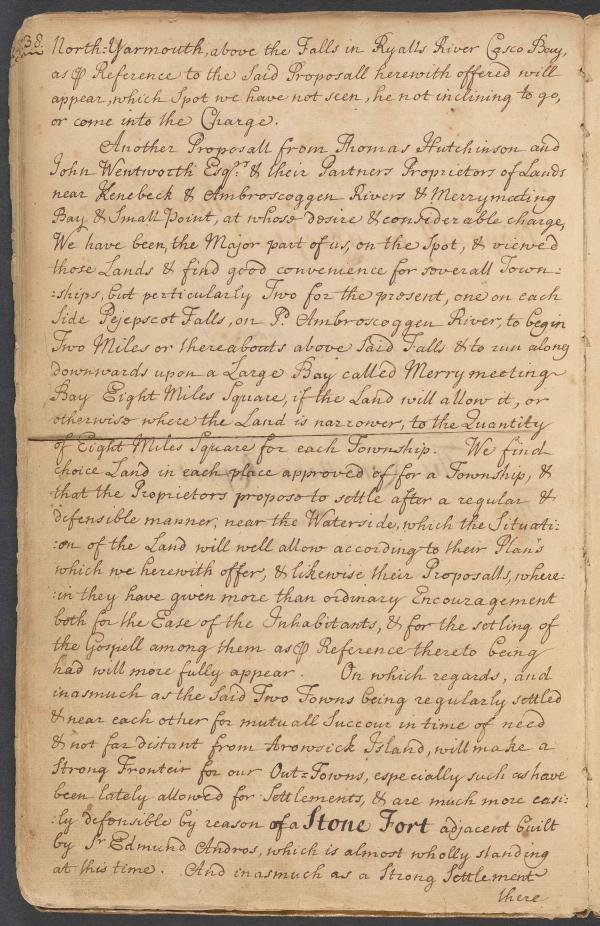 38.
North-Yarmouth, above the Falls in Ryalls River Casco Bay,
as ⅌ Reference to the said Proposall herewith offered will
appear, which Spot we have not seen, he not inclining to go,
or come into the Charge.
Another Proposall from Thomas Hutchinson and
John Wentworth Esqrs. & their Partners Proprietors of Lands
near Kenebeck & Ambroscoggen Rivers & Merrymeeting
Bay & Small Point, at whose desire & considerable charge,
We have been, the Major part of us, on the Spot, & viewed
those Lands & find good convenience for severall Town=
=ships, but perticularly Two for the present, one on each
side Pejepscot Falls, on Sd. Ambroscoggen River, to begin
Two Miles or thereabouts above said Falls & to run along
downwards upon a Large Bay called Merrymeeting
Bay Eight Miles Square, if the Land will allow it, or
otherwise where the Land is narrower, to the Quantity
of Eight Miles Square for each Township. We find
choice Land in each place approved of for a Township, &
that the Proprietors propose to settle after a regular &
defensible manner, near the Waterside, which the Situati=
:on of the Land will well allow according to their Plan's
which we herewith offer, & likewise their Proposalls, where:
:in they have given more than ordinary Encouragement
both for the Ease of the Inhabitants, & for the setling of
the Gospell among them as ⅌ Reference thereto being
had will more fully appear. On which regards, and
inasmuch as the said Two Towns being regularly settled
& near each other for mutuall Succour in time of need
& not far distant from Arowsick Island, will make a
Strong Fronteir for our Out=Towns, especially such as have
been lately allowed for Settlements, & are much more easi:
:ly defensible by reason of a Stone Fort adjacent built
by Sr Edmund Andros, which is almost wholly standing
at this time. And inasmuch as a Strong Settlement
there